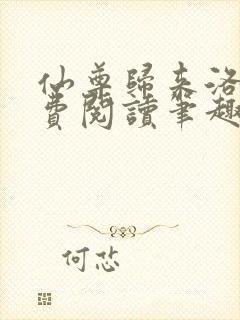 仙尊歸來洛
費閱讀筆趣
何忿